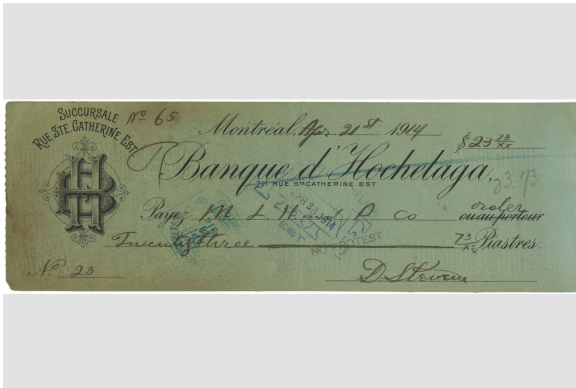 SUCCURSALE
RUE STE. CATHERINE EST
Nº 65
Montréal, Apr 21st 1914
$23 73/xx
Banque d'Hochelaga,
711 RUE STE CATHERINE EST
23.73
Payez M L H P Co order
ou au porteur
Twenty three 73/xx Piastres.
NO PROTEST
Nº 23
D. Stevens